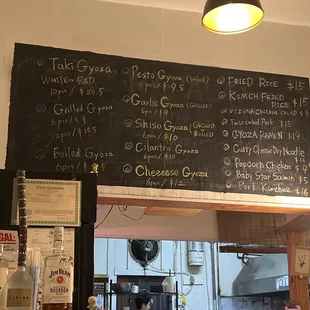 Taki Gyoza
White or Red
10pcs / $
Grilled Gyoza
6pcs / $
12pcs / $
Boiled Gyoza
8pcs / $
Pesto Gyoza (Boiled)
6pcs / $9.5
Garlic Gyoza (Grilled)
6pcs / $9
Shiso Gyoza (Grilled Boiled)
6pcs / $10
Cilantro Gyoza
6pcs / $10
Cheeeese Gyoza
6pcs / $12
Fried Rice $15
Kimchi Fried Rice $15
Mizuna Chicken Salad $
Pork $
Gyoza Ramen $14
Curry Cheese Dry Noodle $
Popcorn Chicken $9
Baby Star Salmon $
Pork $16
JIM BEAM
BOURBON